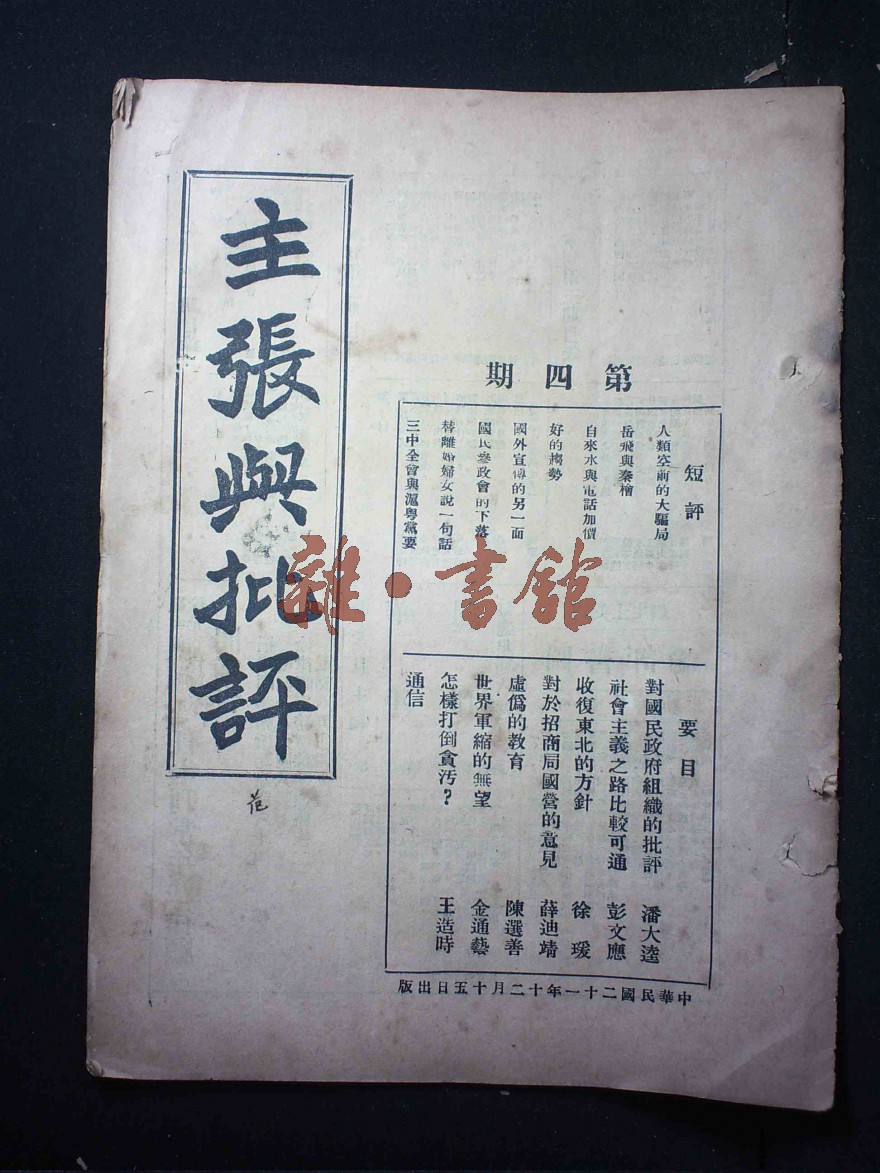 主張與批評
第四期
短評
人類空前的大騙局
岳飛與秦檜
自來水與電話加價
好的趨勢
國外宣傳的另一面
國民參政會的下落
替離婚婦女說一句話
三中全會與滬粤黨要
要目
對國民政府組織的批評 潘大逵
社會主義之路比較可通 彭文應
收復東北的方針 徐瑗
對於招商局國營的意見 薛迪靖
虛僞的教育 陳選善
世界軍縮的無望 金通藝
怎樣打倒貪汚？ 王造時
通信
中華民國二十一年十二月十五日出版
范
雜·書館